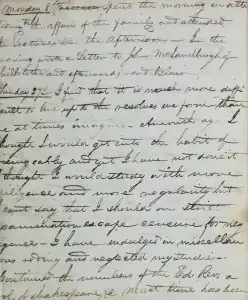 Monday 1st spent the morning in atten
the affairs of the family and attended
lectures in the afternoon - In the
evening wrote a Letter to
and afterwards
Tuesday 2nd I find that it is much more diffi
cult to live up to the resolves we form than
we at times imagine - A month ago I
thought I would get into the habit of
and yet I have not done it
thought I would study with more
diligence and more regularity but
cant say that I should on strict
examination escape censure for neg
ligence - I have indulged in miscellan
ous reading and neglected my studies -
Continued the numbers of the Ed. Rev. a
vol. of Shakespeare, & most time has been